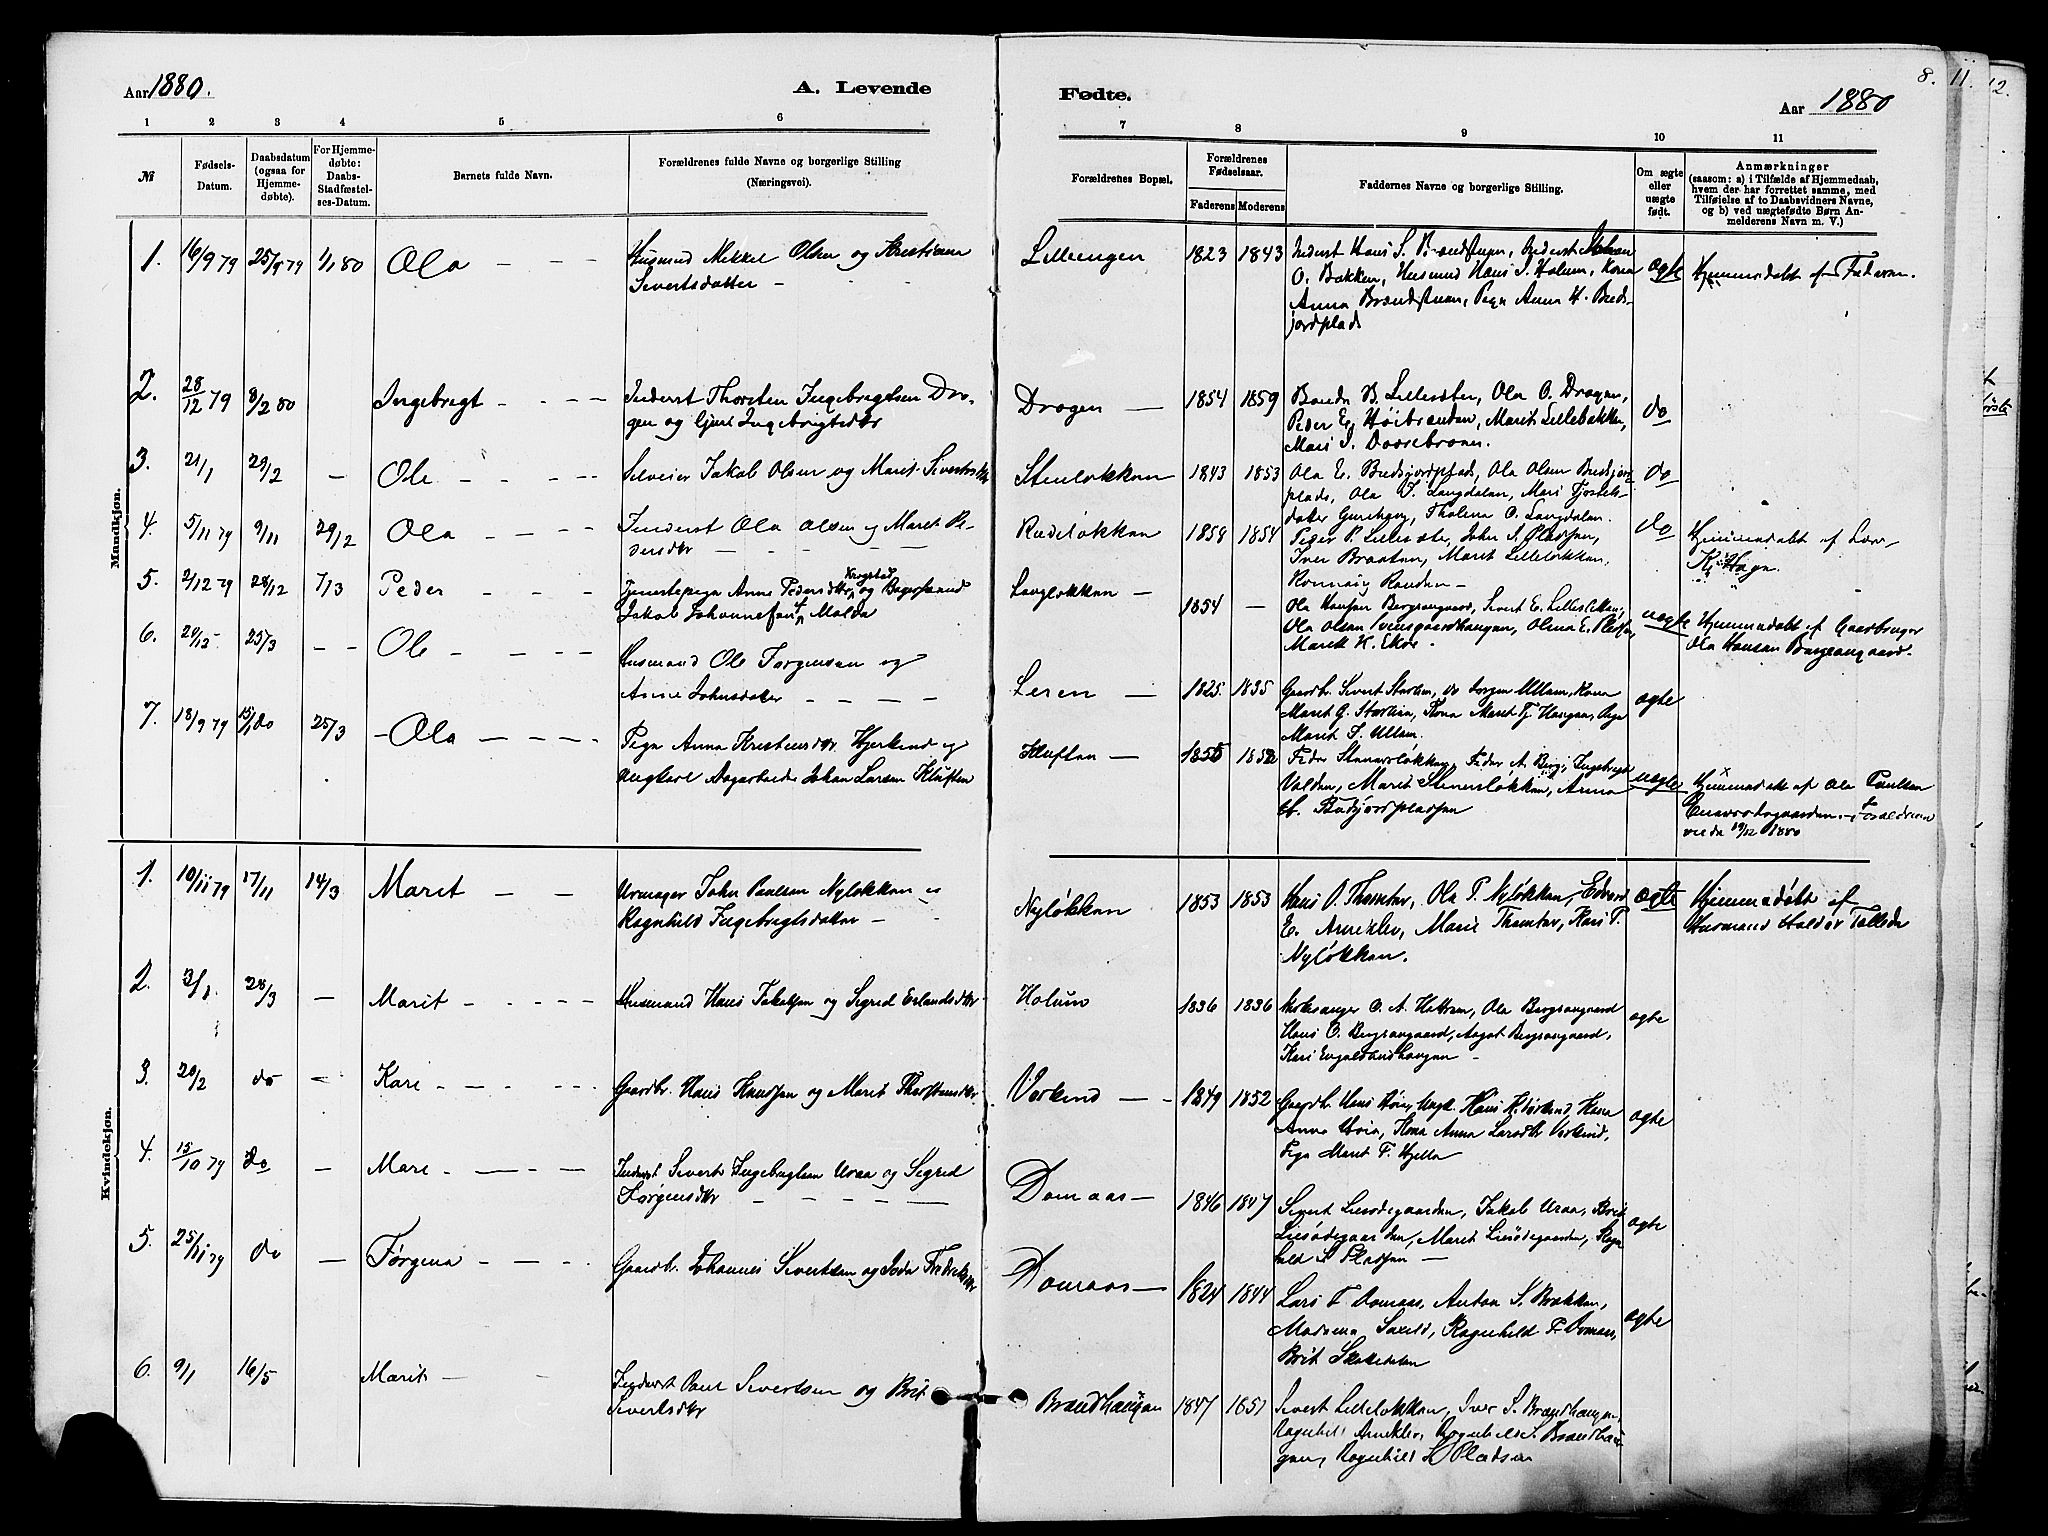 Aar 1880.
A. Levende
Fødte.
Aar 1880
8.
11.
12.
1 2 3 4 5 6
7 8 9 10 11
№
Fødsels-
Datum.
Daabsdatum
(ogsaa for
Hjemme-
døbte).
For Hjemme-
døbte:
Daabs-
Stadfæstel-
ses-Datum.
Barnets fulde Navn.
Forældrenes fulde Navne og borgerlige Stilling
(Næringsvei).
Forældrenes Bopæl.
Forældrenes
Fødselsaar.
Faderens Moderens
Faddernes Navne og borgerlige Stilling.
Om ægte
eller
uægte
født.
Anmærkninger
(saasom: a) i Tilfælde af Hjemmedaab,
hvem der har forrettet samme, med
Tilføielse af to Daabsvidners Navne,
og b) ved uægtefødte Børn An-
melderens Navn m. V.)
Mandkjøn.
1. 16/9 79 25/9 79 1/1 80 Ola
Husmand Mikkel Olsen og Kristianna
Sivertsdatter
Lilleengen 1823 1843
Inderst Hans S. Brændstuen, Inderst Johan
O. Bakken, Husmand Hans J. Holum, Kona
Anna Brændstuen, Pige Anna H. Buds-
jordplads
ægte Hjemmedøbt af Faderen.
2. 28/12 79 8/2 80 Ingebregt
Inderst Thorsten Ingebregtsen Dro-
gen og Guri Ingebrigtsdtr
Drogen 1854 1859
B. Lillesæter, Ola O. Drogen,
Peder E. Høibranden, Marit Lillebakken,
Mari I.
do
3. 21/1 29/2 - Ole
Selveier Jakob Olsen og Marit Sivertsdtr
Stenløkken 1843 1853
Ola E. Budsjordplads, Ola Olsen Budsjord-
plads, Ola J. Langdalen, Mari Tjostels-
datter, Thalena O. Langdalen.
do
4. 5/11 79 9/11 29/2 Ola
Inderst Ola Olsen og Marit Pe-
dersdtr
Rudiløkken 1858 1854
Peder P. Lillesæter, John S. Pladsen,
Iver Braaten, Marit Lilleløkken,
Rønnaug Randen
do Hjemmedøbt af Lær-
K. Hage.
5. 2/12 79 28/12 7/3 Peder
Tjenestepige Anne Pedersdtr Krogstad og Bagersvend
Jakob Johannesen f. Molde
Langløkken 1854 -
Ola Hansen Bergsengaard, Sivert E. Lillesletten,
Ola Olsen, Olina E. Pladsen,
Marit K. Ekre.
uægte Hjemmedøbt af Gaardbruger
Ola Hansen Bergsengaard.
6. 29/12 25/3 - - Ole
Husmand Ole Jørgensen og
Anne Johnsdatter
Leren 1825 1835
Gaardbr. Sivert Stavlien, do Jørgen Ullern, Kona
Marit G. Stavlien, Kona Marit Tj. Haugen, Pige
Marit S. Ullern.
ægte
7. 18/9 79 15/1 do 25/3 Ola
Pige Anna Kristensdtr. Hjerkind og
Ungkarl Johan Larsen Kluften
Kluften 1855 1852
Peder Stenersløkken, Peder A. Berg, Ingebregt
Volden, Marit Stenersløkken, Anna
Budsjordpladsen
uægte Hjemmedøbt af Ola Paulsen
Forældrene
viede 19/12 1880
Kvindekjøn.
1. 10/11 79 17/11 14/3 Marit
Urmager John Paulsen Nyløkken og
Ragnhild Ingebregtsdatter
Nyløkken 1853 1853
Hans O. Thomter, Ola P. Nyløkken, Edvard
E. Arneklev, Marie Thomter, Kari P.
Nyløkken.
ægte Hjemmedøbt af
Husmand Haldor Tollede
2. 3/1 28/3 - Marit
Husmand Hans Jakobsen og Sigrid Erlandsdtr
Holum 1836 1836
Kirkesanger O. A. Hattrem, Ola Bergsengaard
Hans O. Bergsengaard, Aagot Bergsengaard,
Kari
ægte
3. 20/2 do - Kari
Gaardbr. Hans Knudsen og Marit Thorstensdtr
Vorkind 1849 1852
Gaardbr. Hans Høie, Ungk. Hans K. Vorkind, Kona
Anna Hoie, Kona Anna Larsdtr Vorkind,
Pige Marit P. Hjelle
ægte
4. 15/10 79 do - Mari
Inderst Sivert Ingebregtsen Uraa og Sigrid
Jørgensdtr
Domaas 1846 1847
Sivert Liesødegaarden, Jakob Uraa, Brit
Liesødegaarden, Marit Liesødegaarden, Ragn-
hild Pladsen
ægte
5. 25/11 79 do - Jørgena
Gaardbr. Johannes Sivertsen og Fredriksdtr
Domaas 1824 1844
Lars T. Domaas, Anton S. Brækken,
Madame, Ragnhild P. Domaas,
Brit
ægte
6. 9/1 16/5 Marit
Inderst Paul Sivertsen og Brit
Sivertsdtr
Brændhaugen 1847 1851
Sivert Lilleløkken, Iver S. Brændhaugen,
Ragnhild Arneklev, Ragnhild S. Brændhau-
gen, Ragnhild Pladsen